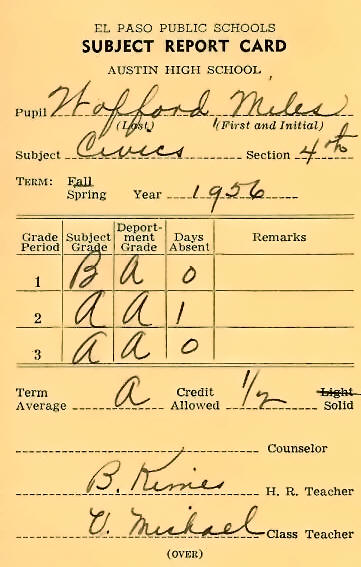 EL PASO PUBLIC SCHOOLS
SUBJECT REPORT CARD
AUSTIN HIGH SCHOOL
Pupil Wofford Miles
(Last) (First and Initial)
Subject Civics Section 4th
TERM: Fall
Spring Year 1956
Grade Period Subject Grade Deport-ment Grade Days Absent Remarks
1 B A 0
2 A A 1
3 A A 0
Term Average A Credit Allowed 1/2 Light Solid
Counselor
B. Kimes H. R. Teacher
V. Michael Class Teacher
(OVER)